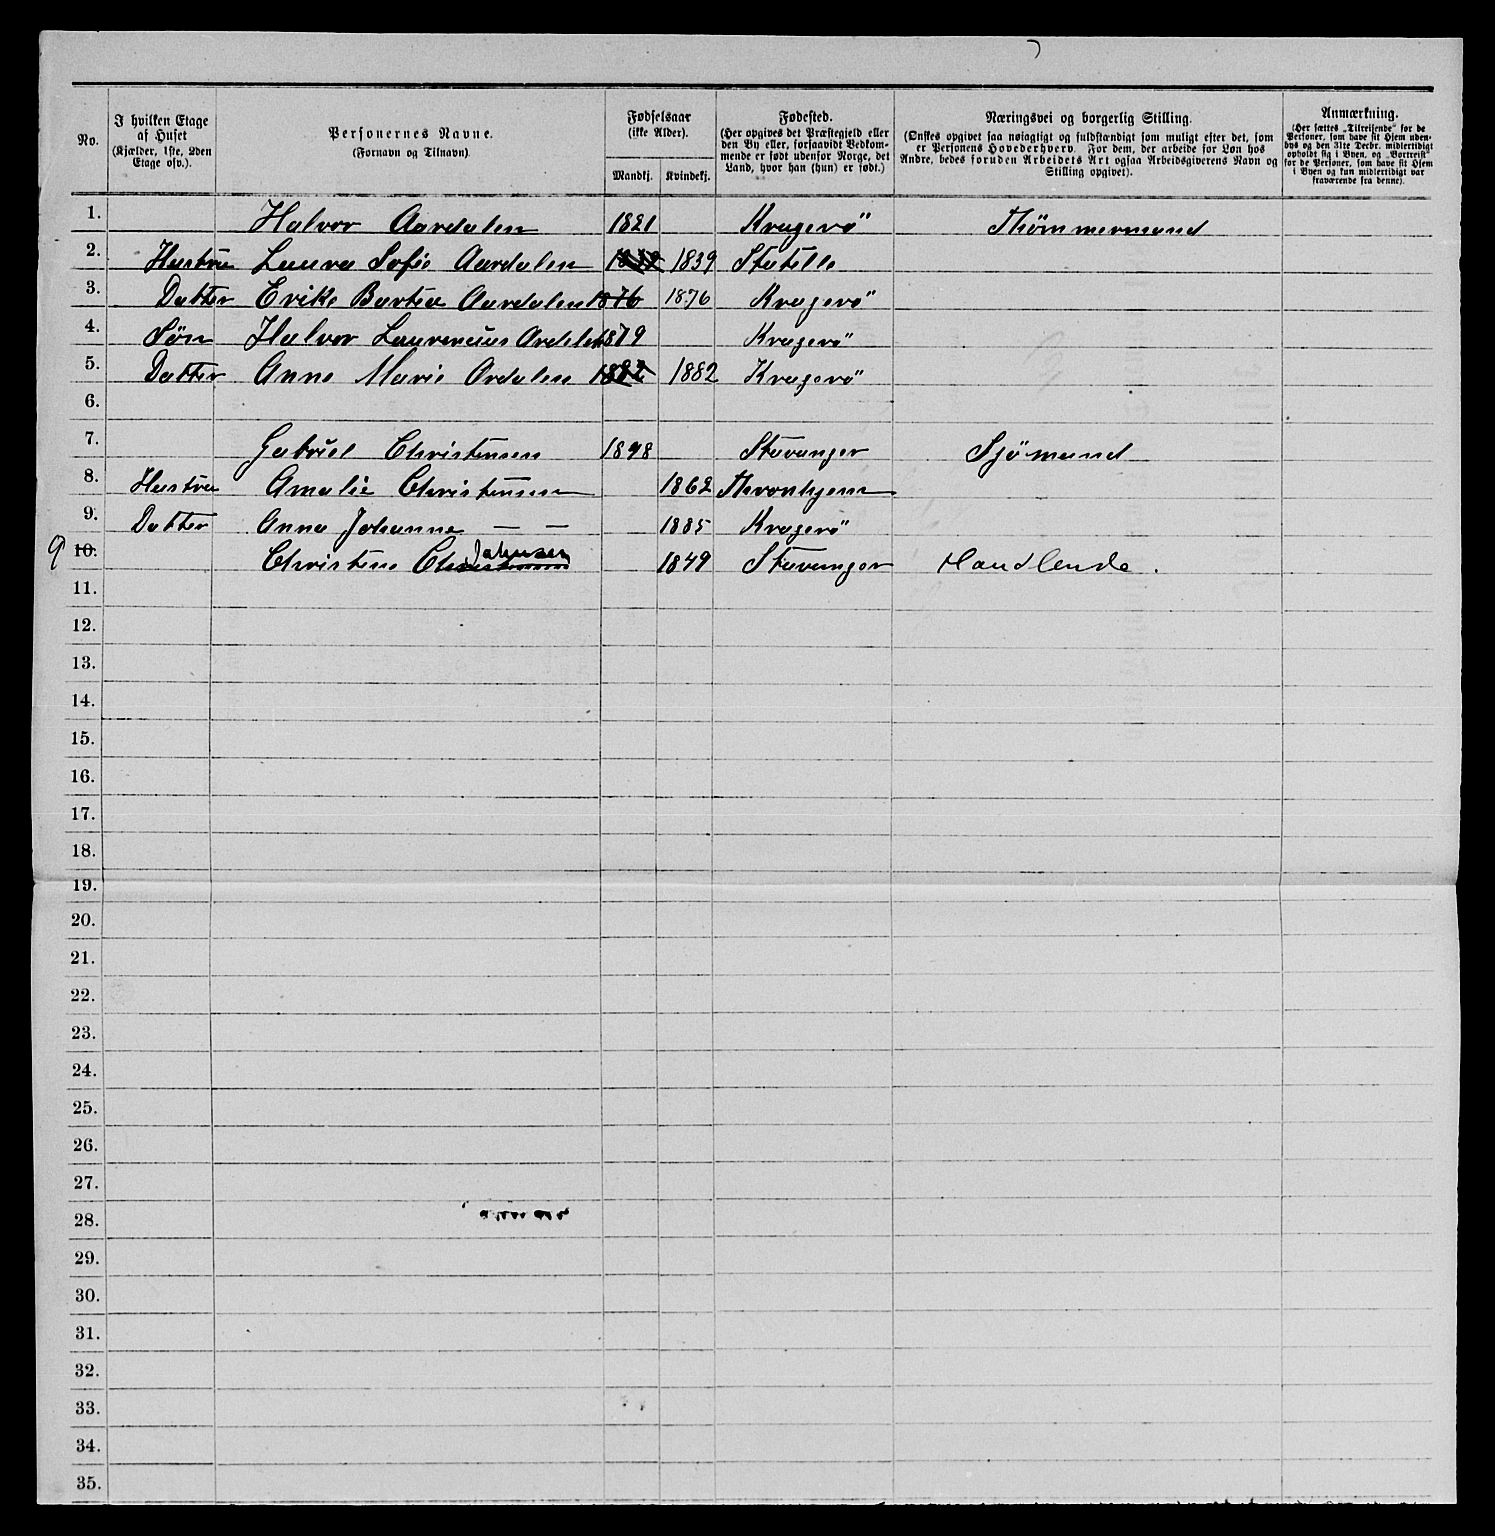 No. | I hvilken Etage af Huset (Kjælder, 1ste, 2den Etage osv.). | Personernes Navne. (Fornavn og Tilnavn). | Fødselsaar (ikke Alder). Mandkj. | Kvindekj. | Fødested. (Her opgives det Præstegjeld eller den By eller, forsaavidt Vedkommende er født udenfor Norge, det Land, hvor han (hun) er født.) | Næringsvei og borgerlig Stilling. (Ønskes opgivet saa nøiagtigt og fuldstændigt som muligt efter det, som er Personens Hovederhverv. For dem, der arbeide for Løn hos Andre, bedes foruden Arbeidets Art ogsaa Arbeidsgiverens Navn og Stilling opgivet). | Anmærkning. (Her sættes „Tilreisende“ for de Personer, som have sit Hjem udenbys og den 31te Decbr. midlertidigt opholdt sig i Byen, og „Bortreist“ for de Personer, som have sit Hjem i Byen og kun midlertidigt var fraværende fra denne).
1. Halvor Aardalen 1821 Kragerö Thömmermand
2. Hustru Laura Sofie Aardalen 1839 1839 Statelle
3. Datter Erike Bartea Aardalen 1876 1876 Kragerö
4. Sön Halvor Laurencius Ardalen 1879 Kragerö
5. Datter Anne Marie Ardalen 1882 1882 Kragerö
6.
7. Gabriel Christensen 1848 Stavanger Sjömand
8. Hustru Amalie Christensen 1862 Thronhjem
9. Datter Anna Johanne — — 1885 Kragerö
9 10. Christene Christensen Johnsen 1849 Stavanger Handlende.
11.
12.
13.
14.
15.
16.
17.
18.
19.
20.
21.
22.
23.
24.
25.
26.
27.
28.
29.
30.
31.
32.
33.
34.
35.